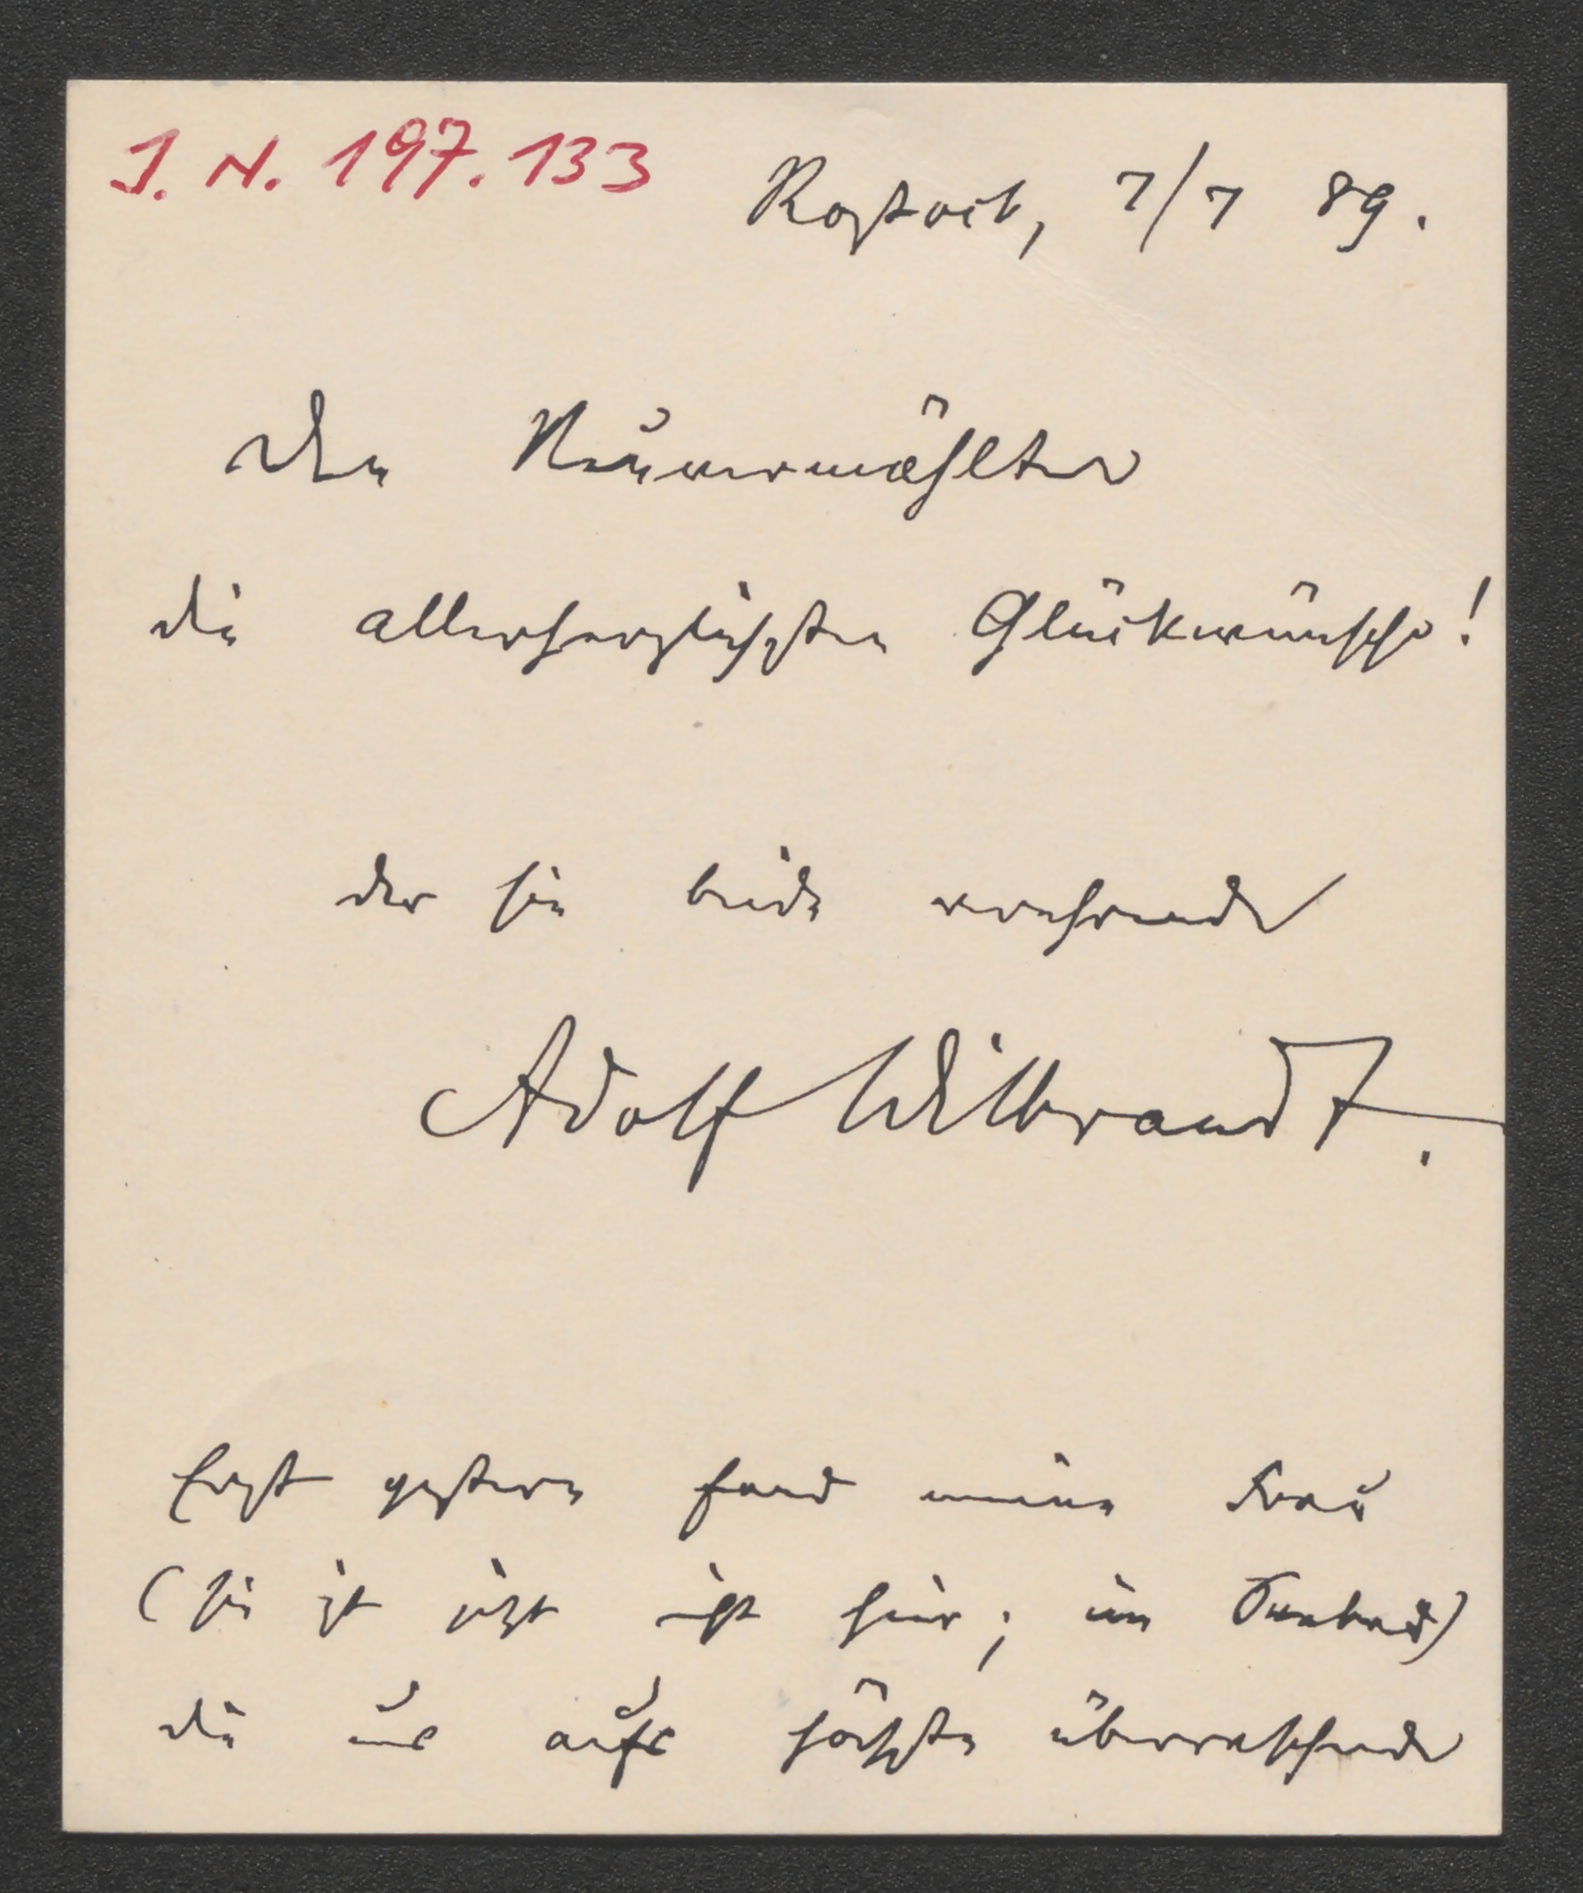 J. N. 197.133
Rostock, 7/7 89.
Den Neuvermählten
die allerherzlichsten Glückwünsche!
der Sie beide verehrende
Adolf Wilbrandt.
Erst gestern fand meine Frau
(sie ist jetzt nicht hier; im Seebad)
die uns aufs höchste überraschende